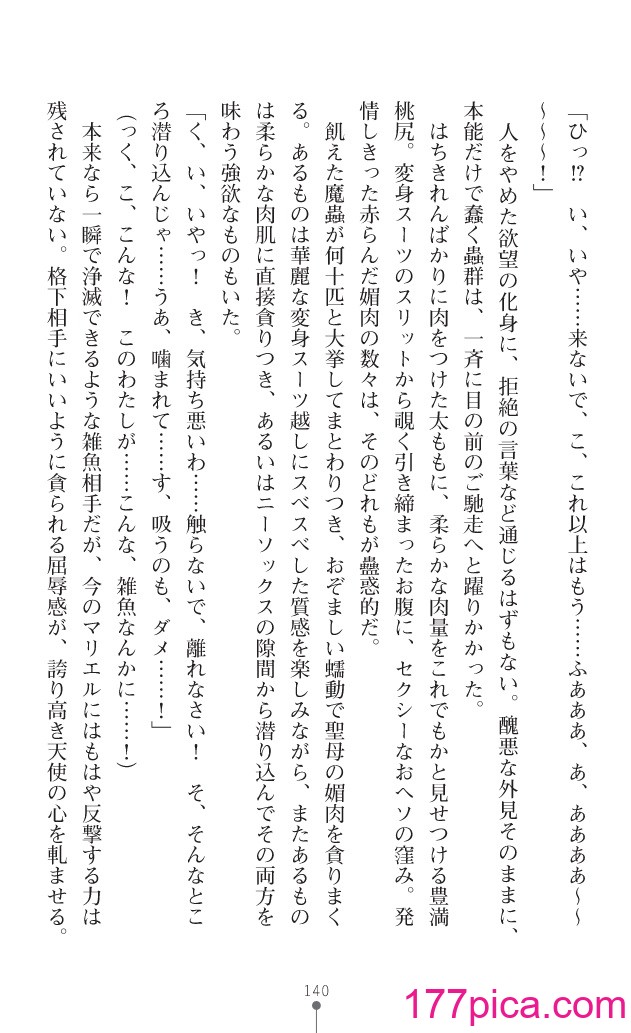 「ひっ!?　い、いや……来ないで、こ、これ以上はもう……ふあああ、あ、ああああ～～
～～～!」
　人をやめた欲望の化身に、拒絶の言葉など通じるはずもない。醜悪な外見そのままに、
本能だけで蠢く蟲群は、一斉に目の前のご馳走へと躍りかかった。
　はちきれんばかりに肉をつけた太ももに、柔らかな肉量をこれでもかと見せつける豊満
桃尻。変身スーツのスリットから覗く引き締まったお腹に、セクシーなおヘソの窪み。発
情しきった赤らんだ媚肉の数々は、そのどれもが蠱惑的だ。
　飢えた魔蟲が何十匹と大挙してまとわりつき、おぞましい蠕動で聖母の媚肉を貪りまく
る。あるものは華麗な変身スーツ越しにスベスベした質感を楽しみながら、またあるもの
は柔らかな肉肌に直接貪りつき、あるいはニーソックスの隙間から潜り込んでその両方を
味わう強欲なものもいた。
「く、い、いやっ!　き、気持ち悪いわ……触らないで、離れなさい!　そ、そんなとこ
ろ潜り込んじゃ……うあ、噛まれて……す、吸うのも、ダメ……!」
(っく、こ、こんな!　このわたしが……こんな、雑魚なんかに……!)
　本来なら一瞬で浄滅できるような雑魚相手だが、今のマリエルにはもはや反撃する力は
残されていない。格下相手にいいように貪られる屈辱感が、誇り高き天使の心を軋ませる。
140
177pica.com